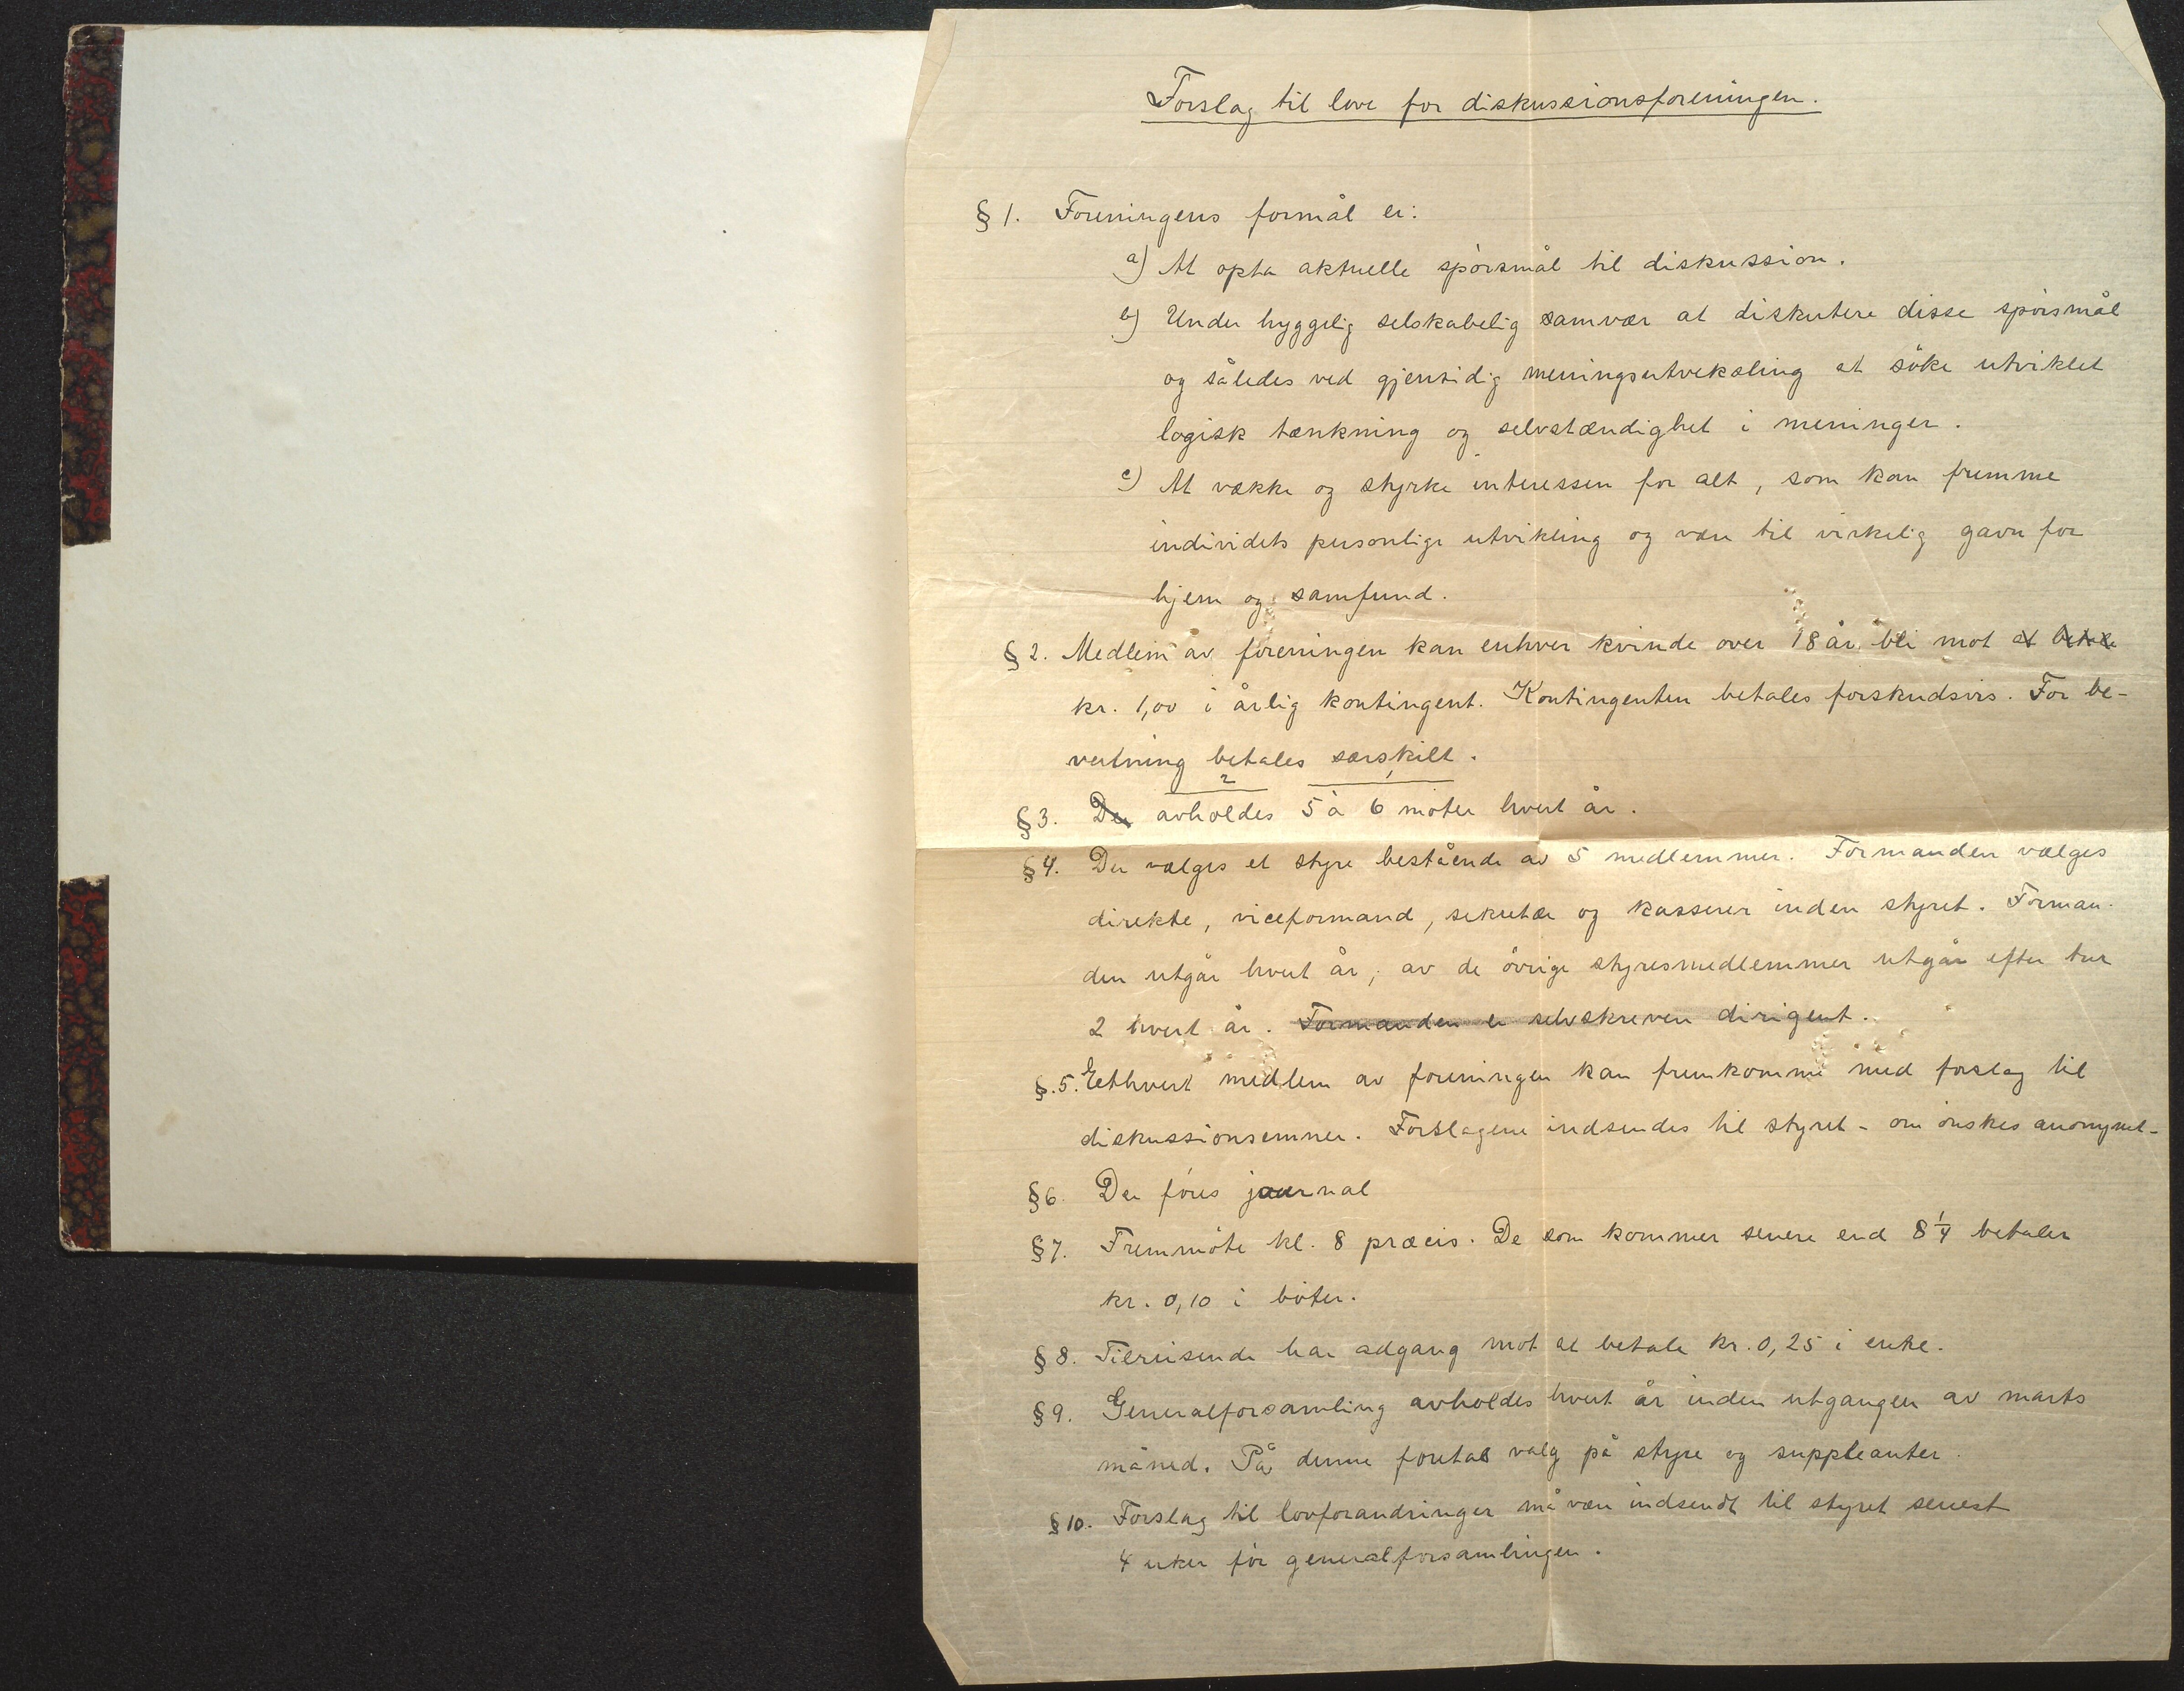 Forslag til love for diskussionsforeningen.
§ 1. Foreningens formål er:
a) At opta aktuelle spörsmål til diskussion.
b) Under hyggelig selskabelig samvær at diskutere disse spörsmål
og således ved gjensidig meningsutveksling at söke utviklet
logisk tænkning og selvstændighet i meninger.
c) At vække og styrke interessen for alt, som kan fremme
individets personlige utvikling og være til virkelig gavn for
hjem og samfund.
§ 2. Medlem av foreningen kan enhver kvinde over 18 år bli mot at betale
kr. 1,00 i årlig kontingent. Kontingenten betales forskudsvis. For be-
vertning betales særskilt.
2 1
§ 3. Der avholdes 5 à 6 möter hvert år.
§ 4. Der vælges et styre bestående av 5 medlemmer. Formanden vælges
direkte, viceformand, sekretær og kasserer inden styret. Forman-
den utgår hvert år, av de övrige styresmedlemmer utgår efter tur
2 hvert år. Formanden er selvskreven dirigent.
§. 5. Ethvert medlem av foreningen kan fremkomme med forslag til
diskussionsemner. Forslagene indsendes til styret - om önskes anonymt -
§ 6. Der föres journal
§ 7. Fremmöte kl. 8 præcis. De som kommer senere end 8 1/4 betaler
kr. 0,10 i böter.
§ 8. Tilreisende har adgang mot at betale kr. 0,25 i entre.
§ 9. Generalforsamling avholdes hvert år inden utgangen av marts
måned. På denne foretas valg på styre og suppleanter.
§ 10. Forslag til lovforandringer må være indsendt til styret senest
4 uker för generalforsamlingen.